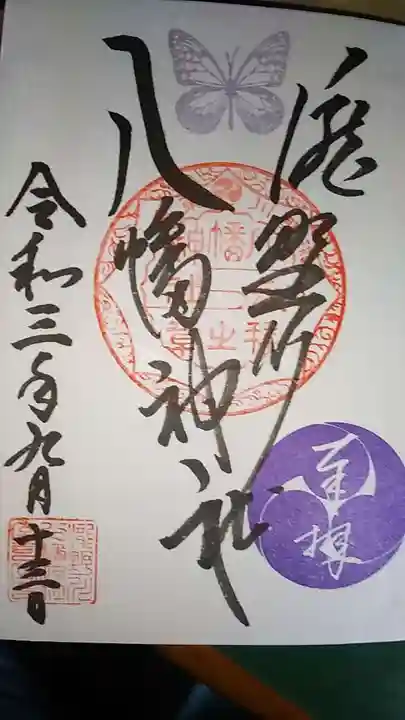 滝野川
八幡神社
奉拝
令和三年九月十三日